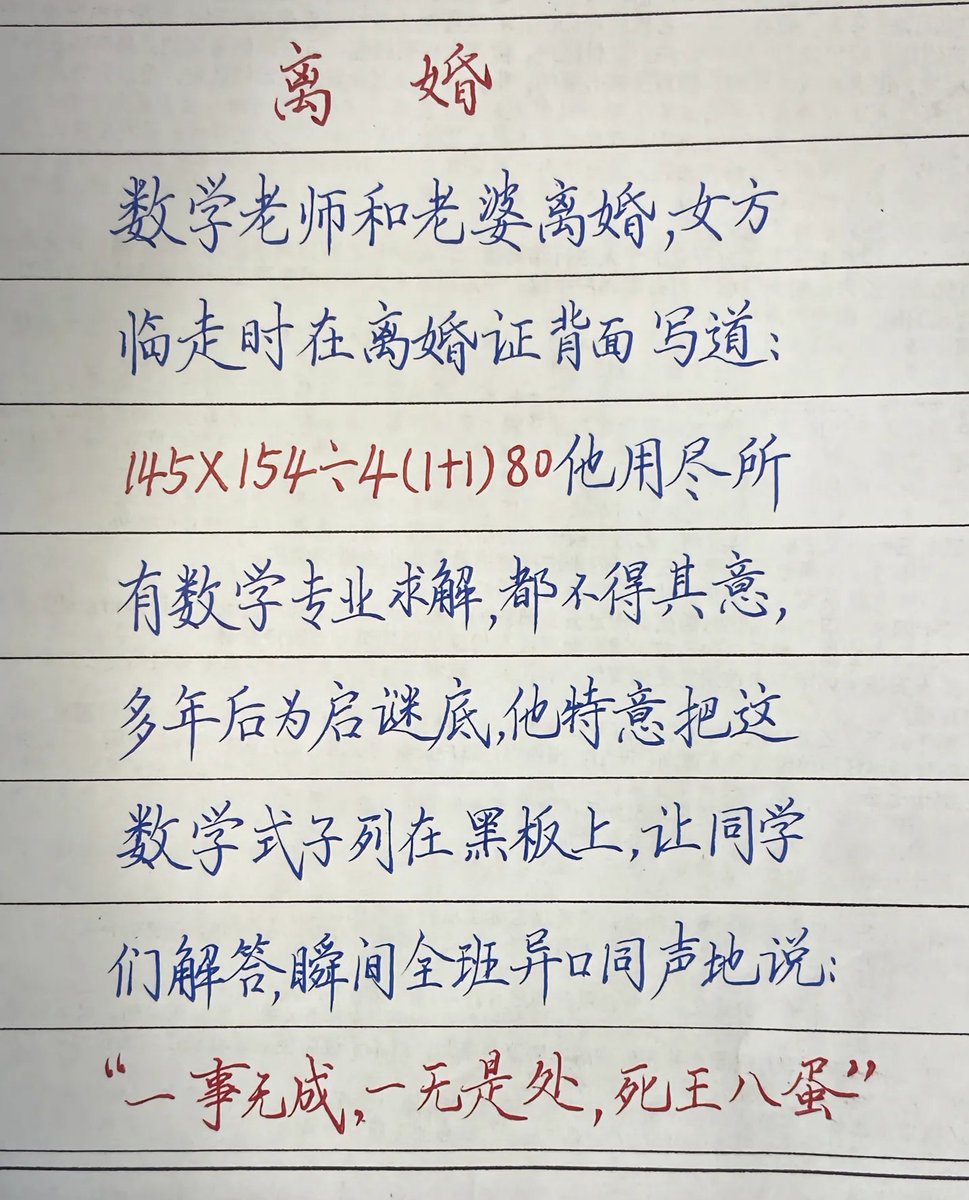 离 婚
数学老师和老婆离婚,女方
临走时在离婚证背面写道:
145×154÷4(1+1)80他用尽所
有数学专业求解,都不得其意,
多年后为启谜底,他特意把这
数学式子列在黑板上,让同学
们解答,瞬间全班异口同声地说:
“一事无成,一无是处,死王八蛋”